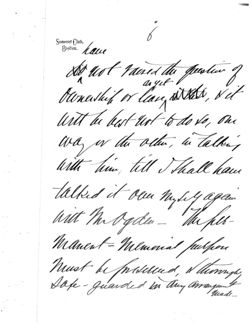 Somerset Club,
Boston.
6
have
not raised the question of
as yet
ownership or lease, & it
will be best not to do so, one
way or the other, in talking
with him, till I shall have
talked it over myself again
with Mr Ogden — The per-
manent = Memorial purpose
must be preserved, & thoroughly
safe-guarded in any arrangement
made.